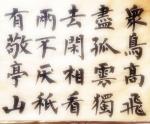 衆鳥高飛
盡孤雲獨
去閑相看
兩不厌祇
有敬亭山